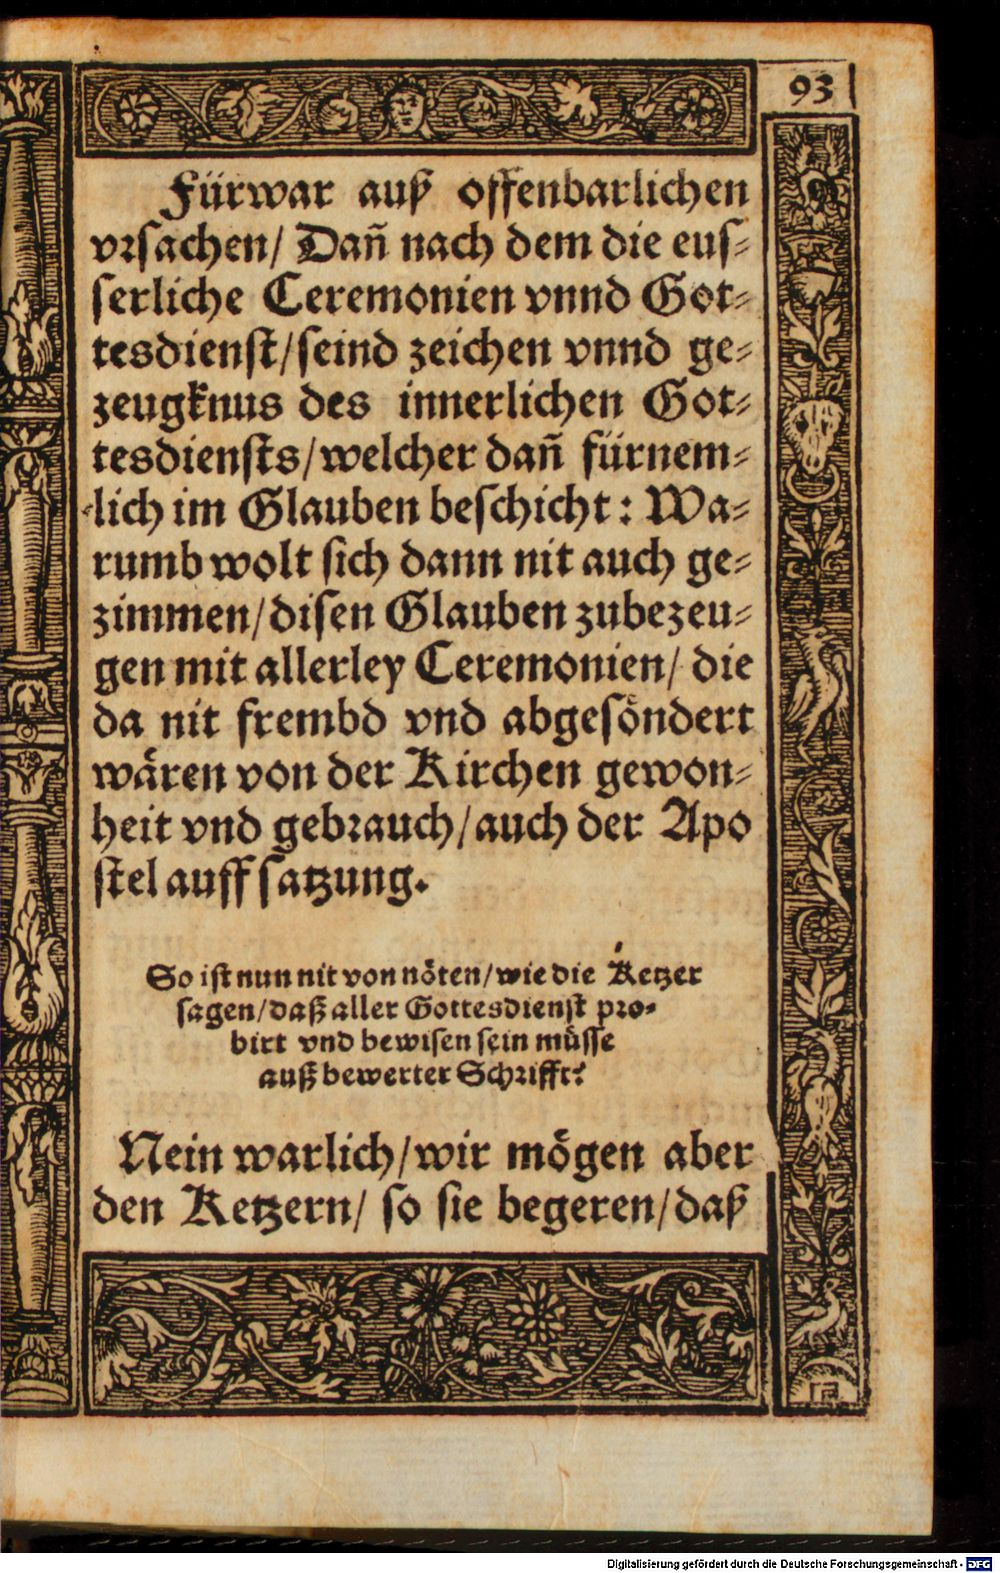 93
Fürwar auß offenbarlichen
vꝛsachen/ Dañ nach dem die euſ⸗
ſerliche Ceremonien vnnd Got⸗
tesdienſt/ſeind zeichen vnnd ge⸗
zeugknus des innerlichen Got⸗
tesdienſts/welcher dañ fürnem⸗
lich im Glauben beſchicht: Wa⸗
rumb wolt ſich dann nit auch ge⸗
zimmen/diſen Glauben zubezeu⸗
gen mit allerley Ceremonien/ die
da nit frembd vnd abgeſöndert
wären von der Kirchen gewon⸗
heit vnd gebꝛauch/auch der Apo
ſtel auff ſatzung.
So iſt nun nit von nöten/wie die Ketzer
ſagen/daß aller Gottesdienſt pꝛo⸗
birt vnd bewiſen ſein müſſe
auß bewerter Schꝛifft?
Nein warlich/wir mögen aber
den Ketzern/ ſo ſie begeren/daß
Digitalisierung gefördert durch die Deutsche Forschungsgemeinschaft - DFG